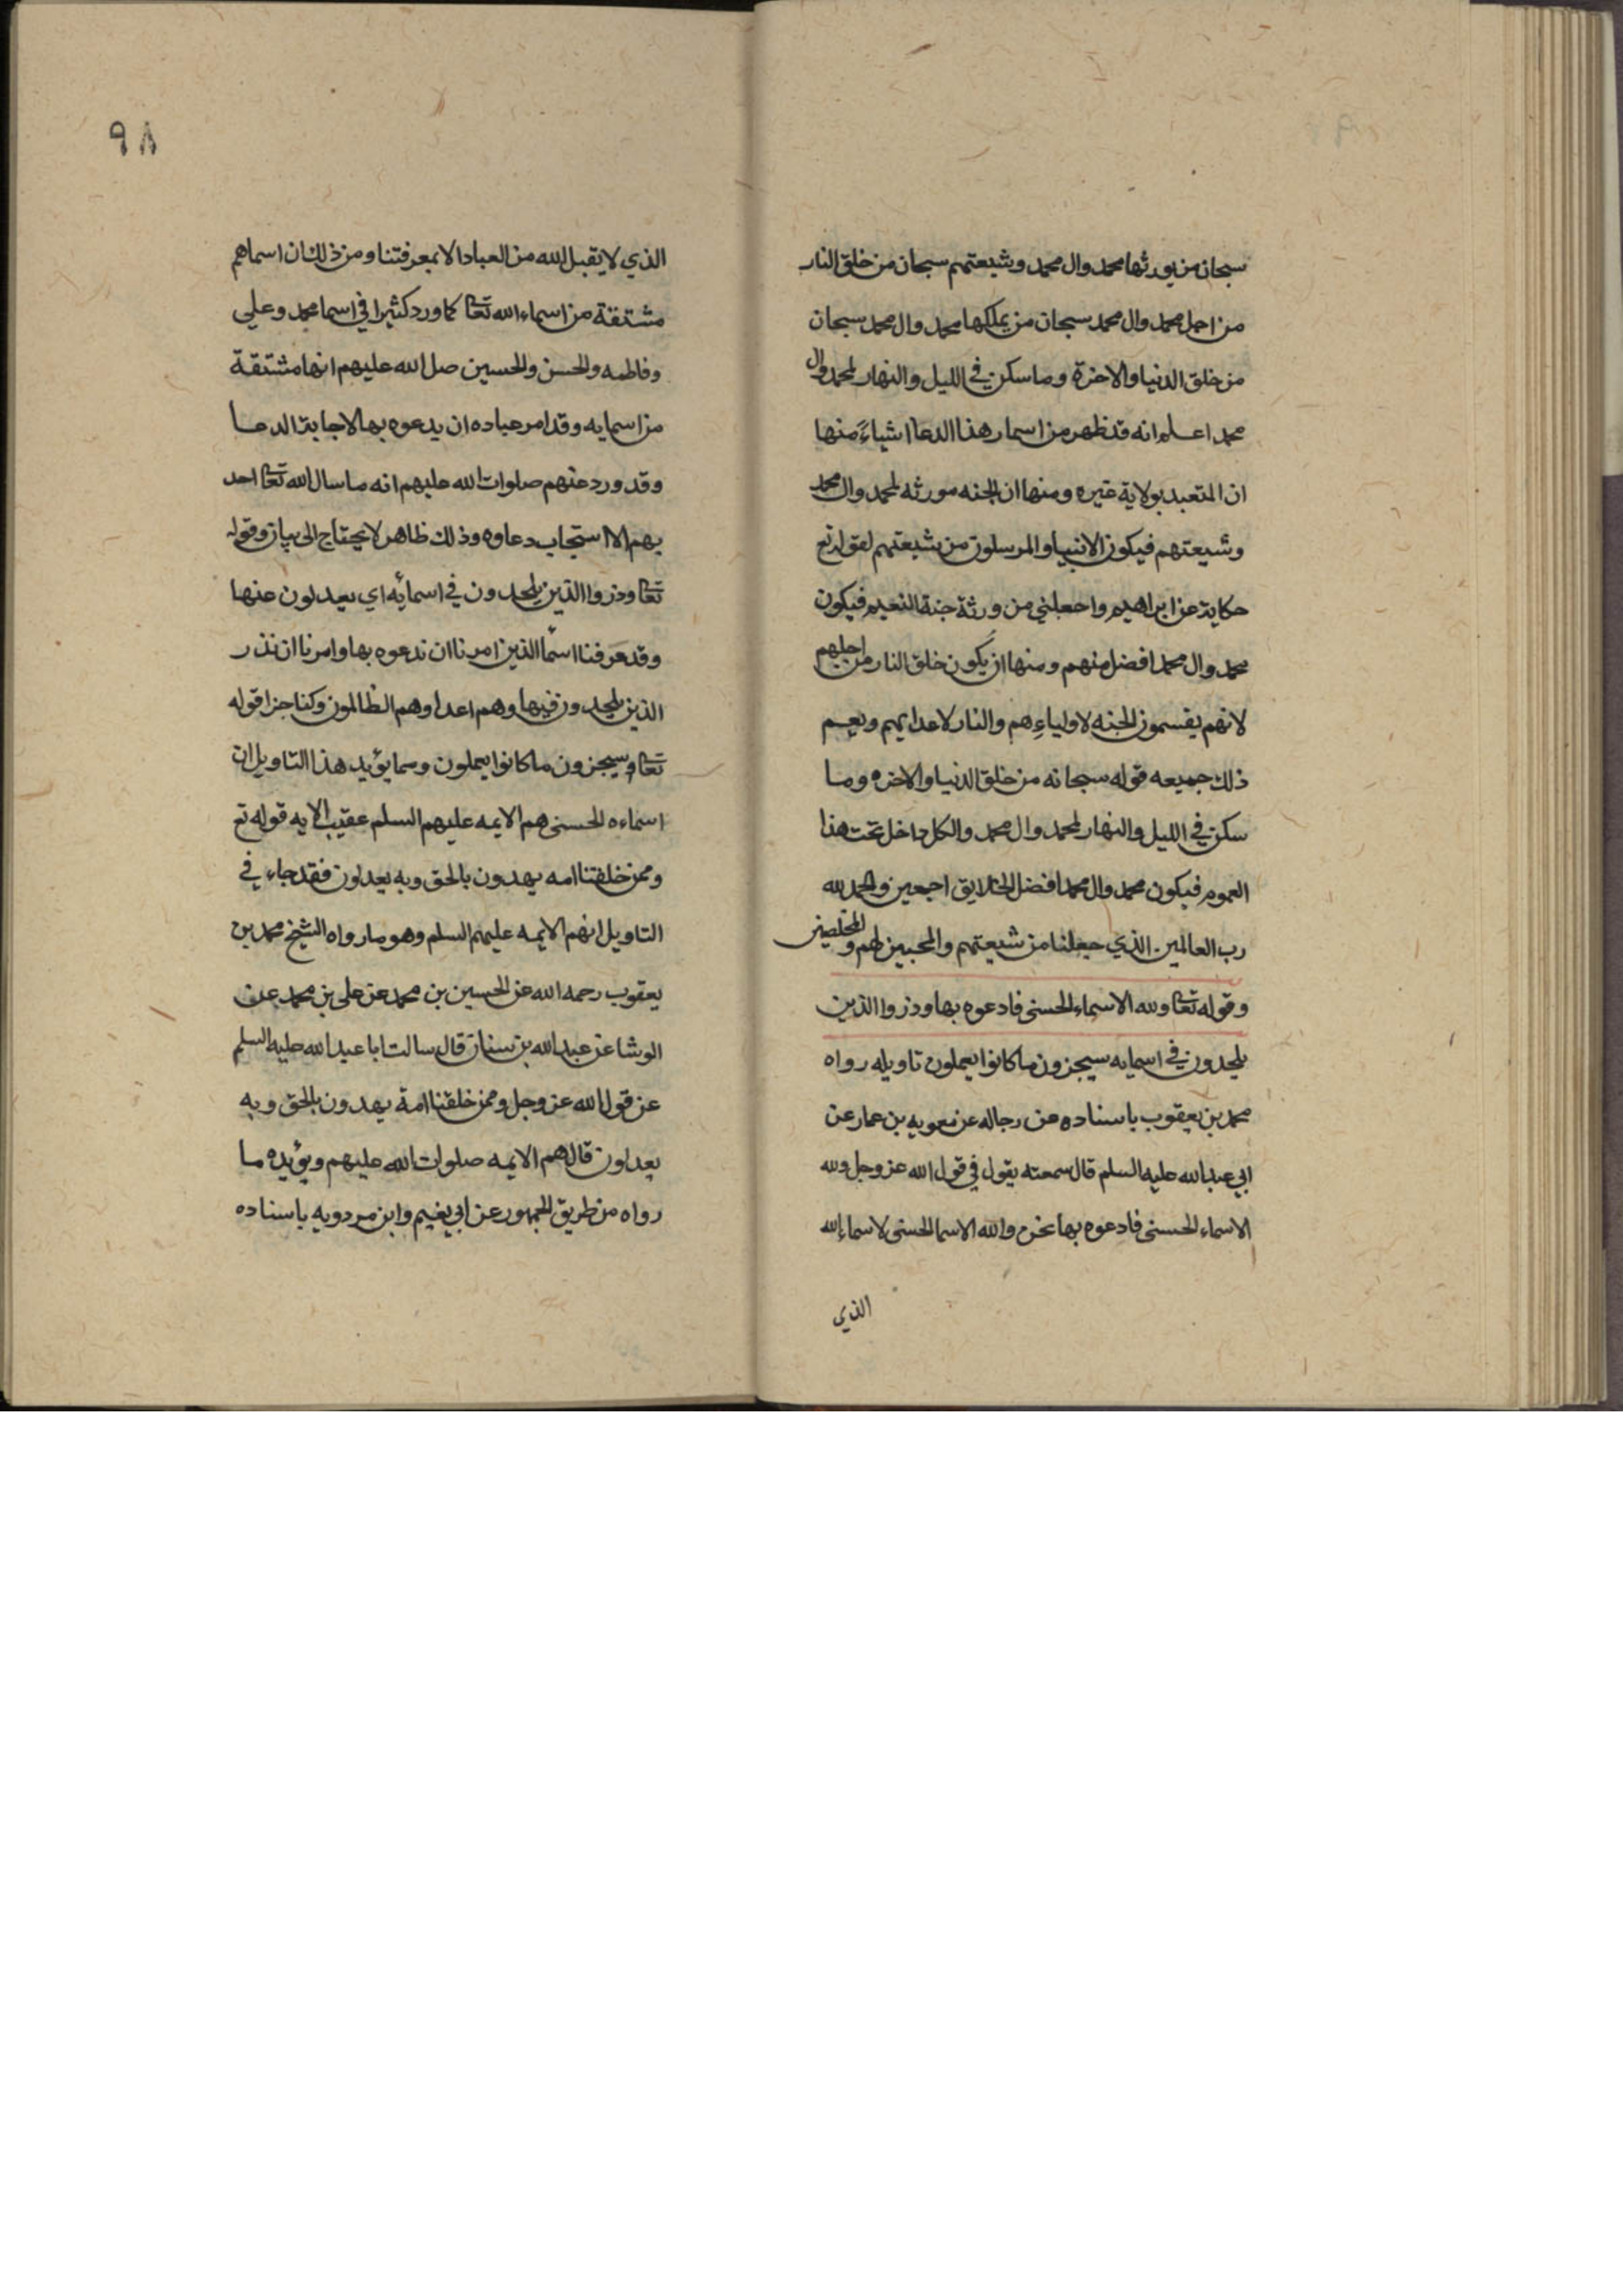 سبحان من يورثها محمد وال محمد وشيعتهم سبحان من خلق النار
من اجل محمد وال محمد سبحان من يملكها محمد وال محمد سبحان
من خلق الدنيا والاخرة وما سكن في الليل والنهار لمحمد وال
محمد اعلم انه قد ظهر من اسمار هذا الدعا اشياءً منها
ان المتعبد بولاية غيره ومنها ان الجنه مورثه لمحمد وال محمد
وشيعتهم فيكون الانبيا والمرسلون من شيعتهم لقوله تع
حكاية عن ابراهيم واجعلني من ورثة جنة النعيم فيكون
محمد وال محمد افضل منهم ومنها ان يكون خلق النار من اجلهم
لانهم يقسمون الجنه لاولياءهم والنار لاعدايهم ويعم
ذلك جميعه قوله سبحانه من خلق الدنيا والاخره وما
سكن في الليل والنهار لمحمد وال محمد والكل داخل تحت هذا
العموم فيكون محمد وال محمد افضل الخلايق اجمعين والحمد لله
رب العالمين الذي جعلنا من شيعتهم والمحبين لهم والمخلصين
وقوله تعا ولله الاسماء الحسنى فادعوه بها وذروا الذين
يلحدون في اسمايه سيجزون ما كانوا يعملون تاويله رواه
محمد بن يعقوب باسناده عن رجاله عن معويه بن عمار عن
ابي عبد الله عليه السلم قال سمعته يقول في قول الله عز وجل ولله
الاسماء الحسنى فادعوه بها نحن والله الاسما الحسنى لاسماء الله
الذي
٩٨
الذي لا يقبل الله من العباد الا بمعرفتنا ومن ذلك ان اسماهم
مشتقة من اسماء الله تعا كما ورد كثيرا في اسما محمد وعلي
وفاطمه والحسن والحسين صل الله عليهم انها مشتقة
من اسمايه وقد امر عباده ان يدعوه بها لاجابة الدعا
وقد ورد عنهم صلوات الله عليهم انه ما سال الله تعا احد
بهم الا استجاب دعاوه وذلك ظاهر لا يحتاج الى بيان وقوله
تعا وذروا الذين يلحدون في اسمائه اي يعدلون عنها
وقد عرفنا اسما الذين امرنا ان ندعوه بها وامرنا ان نذر
الذين يلحدون فيها وهم اعداوهم الظالمون وكنا جزا قوله
تعا وسيجزون ما كانوا يعملون ومما يؤيد هذا التاويل ان
اسماءه الحسنى هم الايمه عليهم السلم عقيب الايه قوله تع
وممن خلقنا امه يهدون بالحق وبه يعدلون فقد جاء في
التاويل انهم الايمه عليهم السلم وهو ما رواه الشيخ محمد بن
يعقوب رحمه الله عن الحسين بن محمد عن على بن محمد عن
الوشا عن عبد الله بن سنان قال سالت ابا عبد الله عليه السلم
عن قول الله عز وجل وممن خلقنا امة يهدون بالحق وبه
يعدلون قال هم الايمه صلوات الله عليهم ويؤيده ما
رواه من طريق الجمهور عن ابي نعيم وابن مردويه باسناده